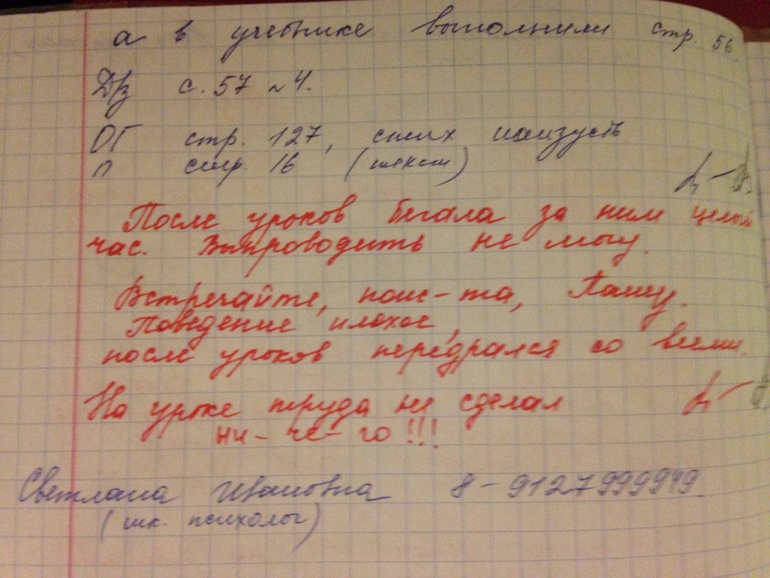 а в учебнике выполнили стр. 56.
Д/з с. 57 №4.
ОГ стр. 127, стих наизусть
П стр. 16 (текст)
После уроков бегала за ним целый
час. Выпроводить не могу.
Встречайте, пож-та, Пашу.
Поведение плохое,
после уроков передрался со всеми.
На уроке труда не сделал
ни-че-го!!!
Светлана Ивановна 8-9127999949
(шк. психолог)